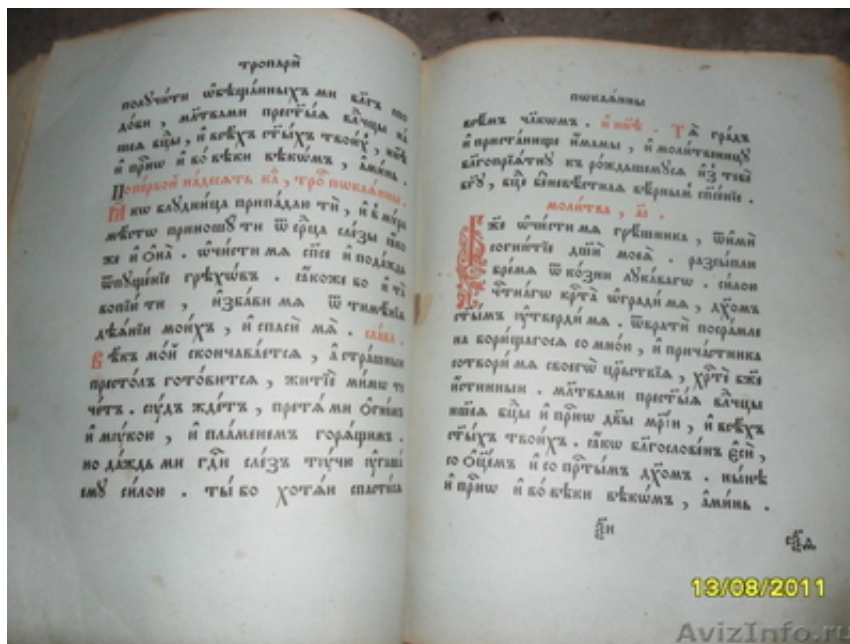 тропари̑
получи́ти ѡ҆бѣща́нныхъ ми бл҃гъ спо
до́би , мл҃твами прест҃ы́ѧ влⷣчцы на
шеѧ бцⷣы , и҆ всѣ́хъ ст҃ы́хъ твои́хъ , нн҃ѣ
и҆ при́сно и҆ во́ вѣки вѣкѡ́мъ , а҆ми́нь .
По пе́рвой на́десѧть ка , тро покаѧ́нны .
Ꙗ҆́кѡ блудни́ца припа́даю ти̑ , и҆ в мѵ́ра
мѣсто приношу́ ти ѿ се́рдца сле́зы ꙗ҆́ко
же и҆ ѻ҆на̀ . ѡ҆чи́сти мѧ сп҃се и҆ пода́ждь
ѿпуще́нїе грѣхѡ́въ . ꙗ҆́коже бо и҆ та̀
вопїи́ ти , и҆зба́ви мѧ ѿ тимѣ́нїѧ
дѣѧ́нїи мои́хъ , и҆ спаси́ мѧ̀ . сла́ва .
Вѣ́къ мо́й скончава́етсѧ , а҆ стра́шныи
престо́лъ гото́витсѧ , житїѐ ми́мѡ те
че́тъ . су́дъ жде́тъ , претѧ̀ ми ѻ҆гне́мъ
и҆ му́кою , и҆ пла́менемъ горѧ́щимъ .
но да́ждь ми гдⷭ҇и сле́зъ ту́чю ᲂу҆гаша
ему си́лою . ты́ бо хотѧ́и спасти́сѧ
пѡкаѧ́нны
всѣ́мъ чл҃кѡмъ . и҆ нн҃ѣ . Тѧ̀ гра́дъ
и҆ приста́нище и҆́мамы , и҆ моли́твеницу
бл҃гопрїѧ́тну къ ро́ждьшемусѧ и҆з̾ тебѐ
бг҃у , бцⷣе бг҃оневѣстнаѧ вѣ́рнымъ сп҃се́нїе .
моли́тва , а҃і .
Бж҃е ѡ҆чи́сти мѧ грѣ́шника , ѿимѝ
согни́тїе дш҃ѝ моеѧ̀ . разсы́пли
бре́мѧ ѿ ко́зни лука́ваго . си́лою
чтⷭ҇на́гѡ крⷭ҇та̀ ѡ҆гради́ мѧ , дх҃омъ
ст҃ымъ ᲂу҆тверди́ мѧ . ѿвратѝ посра́мле
на борю́щагосѧ со мно́ю , и҆ прича́стника
сотвори́ мѧ своегѡ̀ црⷭ҇твїѧ , хрⷭ҇тѐ бж҃е
и҆́стинныи . мл҃твами прест҃ы́ѧ влⷣчцы
на́шеѧ бцⷣы и҆ при́снѡ дв҃ы мр҃і́и , и҆ всѣ́хъ
ст҃ы́хъ твои́хъ . ꙗ҆́кѡ бл҃гослове́нъ є҆сѝ ,
со ѻ҆ц҃е́мъ и҆ со прст҃ы́мъ дх҃омъ . ны́нѣ
и҆ при́снѡ и҆ во́ вѣки вѣкѡ́мъ , а҆ми́нь .
13/08/2011
AvizInfo.ru